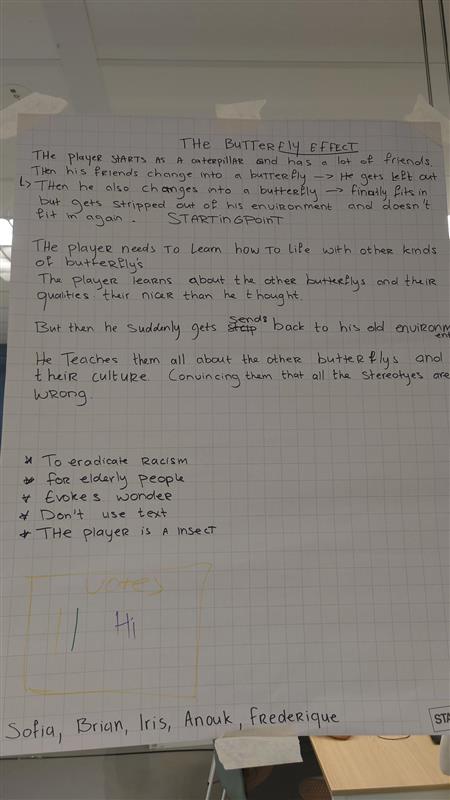 THE BUTTERFLY EFFECT
THE player STARTS AS A caterpillar and has a lot of friends.
Then his friends change into a butterfly → He gets left out
↳ THen he also changes into a butterfly → finally fits in
but gets stripped out of his environment and doesn't
fit in again. STARTINGPOINT
THE player needs To Learn how To life with other kinds
of butterfly's
The player learns about the other butterflys and their
qualities. their nicer than he thought.
But then he suddenly gets sends back to his old environment
He Teaches them all about the other butterflys and
their culture. Convincing them that all the Stereotyes are
WRONG.
* To eradicate racism
* for elderly people
* Evokes wonder
* Don't use text
* THE player is A insect
Votes
Hi
Sofia, Brian, Iris, Anouk, Frederique
STA